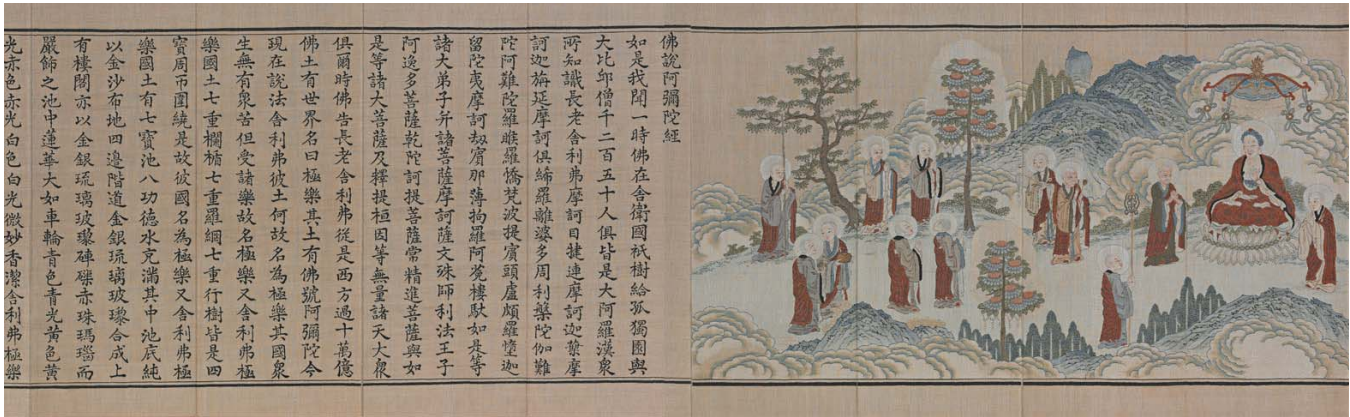 佛說阿彌陀經
如是我聞一時佛在舍衛國祇樹給孤獨園與
大比邱僧千二百五十人俱皆是大阿羅漢衆
所知識長老舍利弗摩訶目揵連摩訶迦葉摩
訶迦旃延摩訶俱絺羅離婆多周利槃陀伽難
陀阿難陀羅睺羅憍梵波提賓頭盧頗羅墮迦
留陀夷摩訶劫賓那薄拘羅阿㝹樓馱如是等
諸大弟子并諸菩薩摩訶薩文殊師利法王子
阿逸多菩薩乾陀訶提菩薩常精進菩薩與如
是等諸大菩薩及釋提桓因等無量諸天大衆
俱爾時佛告長老舍利弗從是西方過十萬億
佛土有世界名曰極樂其土有佛號阿彌陀今
現在說法舍利弗彼土何故名為極樂其國衆
生無有衆苦但受諸樂故名極樂又舍利弗極
樂國土七重欄楯七重羅網七重行樹皆是四
寶周帀圍繞是故彼國名為極樂又舍利弗極
樂國土有七寶池八功德水充滿其中池底純
以金沙布地四邊階道金銀琉璃玻瓈合成上
有樓閣亦以金銀琉璃玻瓈硨磲赤珠瑪瑙而
嚴飾之池中蓮華大如車輪青色青光黃色黃
光赤色赤光白色白光微妙香潔舍利弗極樂